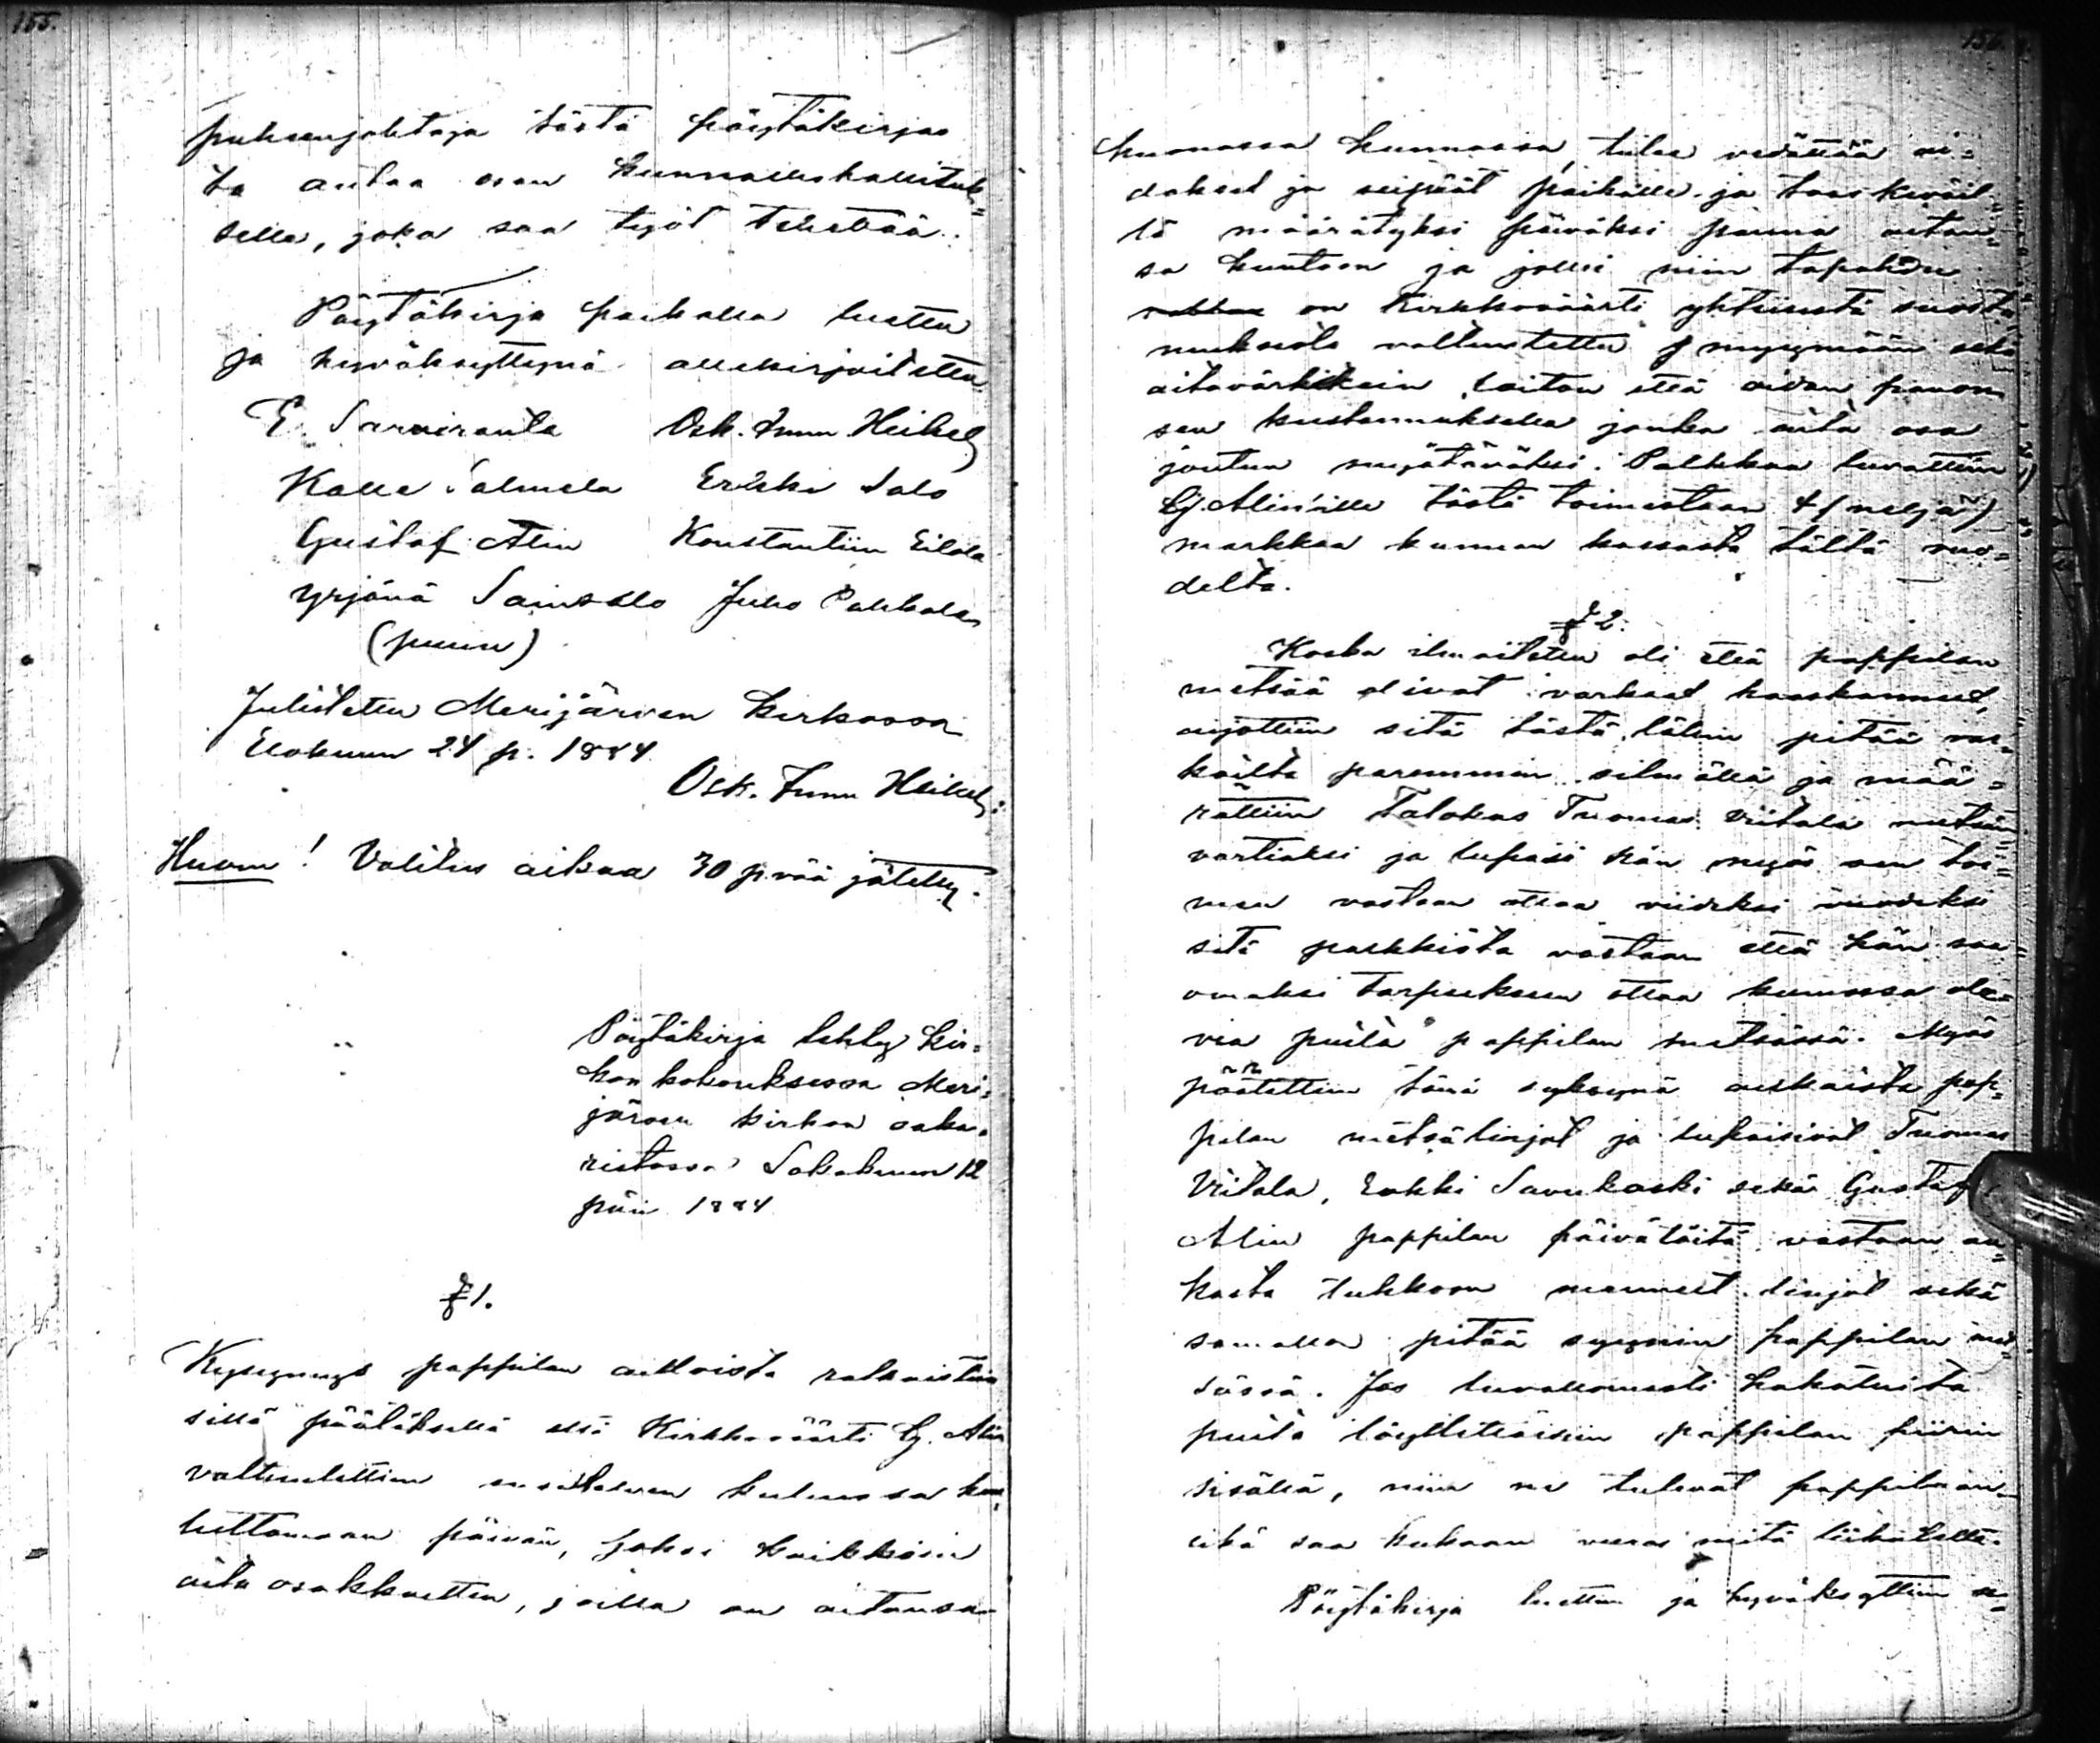 155.
puheenjohtaja tästä pöytäkirjas
ta antaa osan kunnallishallituk=
selle, joka saa työt tehettää.
Pöytäkirja paikalla luettu
ja hyväksyttynä allekirjoitettu.
E. Sarviranta Osk. Imm. Heikel
Kalle Salmela Erkki Salo
Gustaf Alin Konstantiin Eilola
Yrjänä Sainsalo Juho Pahkala
(puum)
Julistettu Merijärven kirkossa
Elokuun 24 p. 1884
Osk. Imm Heikel:
Huom! Valitus aikaa 30 p:vää jätetty.
Pöytäkirja tehty kir=
kon kokouksessa Meri=
järven kirkon saka=
ristossa Lokakuun 12
p:nä 1884
§ 1.
Kysymys pappilan aidoista ratkaistiin
sillä päätöksellä että Kirkkoväärti G. Alin
valtuutettiin ensitalven kuluessa kuu=
luttamaan päivän, joksi kaikkein
aita osakkaitten, joilla on aitansa
156
huonossa kunnossa, tulee vedättää ai=
dakset ja seipäät paikalle ja taas keväil=
lä määrätyksi päiväksi panna aitan=
sa kuntoon ja jollei niin tapahdu
on Kirkkoväärti yhteisestä suostu
muksesta valtuutettu myymään sekä
aitavärkkein laiton että aidan panon
sen kustannuksella jonka aita osa
joutuu myytäväksi. Palkkaa luvattiin
G. Alin'ille tästä toimestaan 4 (neljä)
markkaa kunnan kassasta tältä vuo=
delta.
§ 2.
Koska ilmoitettu oli että pappilan
metsää olivat varkaat haaskanneet,
aijottiin sitä tästä lähin pitää var=
kailta paremmin silmällä ja mää=
rättiin Talokas Tuomas Viitala metsän
vartiaksi ja lupasi hän myös sen toi=
men vastaan ottaa viideksi vuodeksi
sitä palkkiota vastaan että hän saa
omaksi tarpeekseen ottaa kumossa ole=
via puita pappilan metsässä. Myös
päätettiin tänä syksynä aukaista pap=
pilan metsälinjat ja lupaisivat Tuomas
Viitala, Erkki Savukoski sekä Gustaf
Alin pappilan päivätöitä vastaan au=
kasta tukkoon menneet linjat sekä
samalla pitää syynin pappilan met=
sässä. Jos luvattomasti hakatuita
puita löytyttäisiin pappilan piirin
sisällä, niin ne tulevat pappilaan
eikä saa kukaan vieras niitä liikutella.
Pöytäkirja luettiin ja hyväksyttiin se=